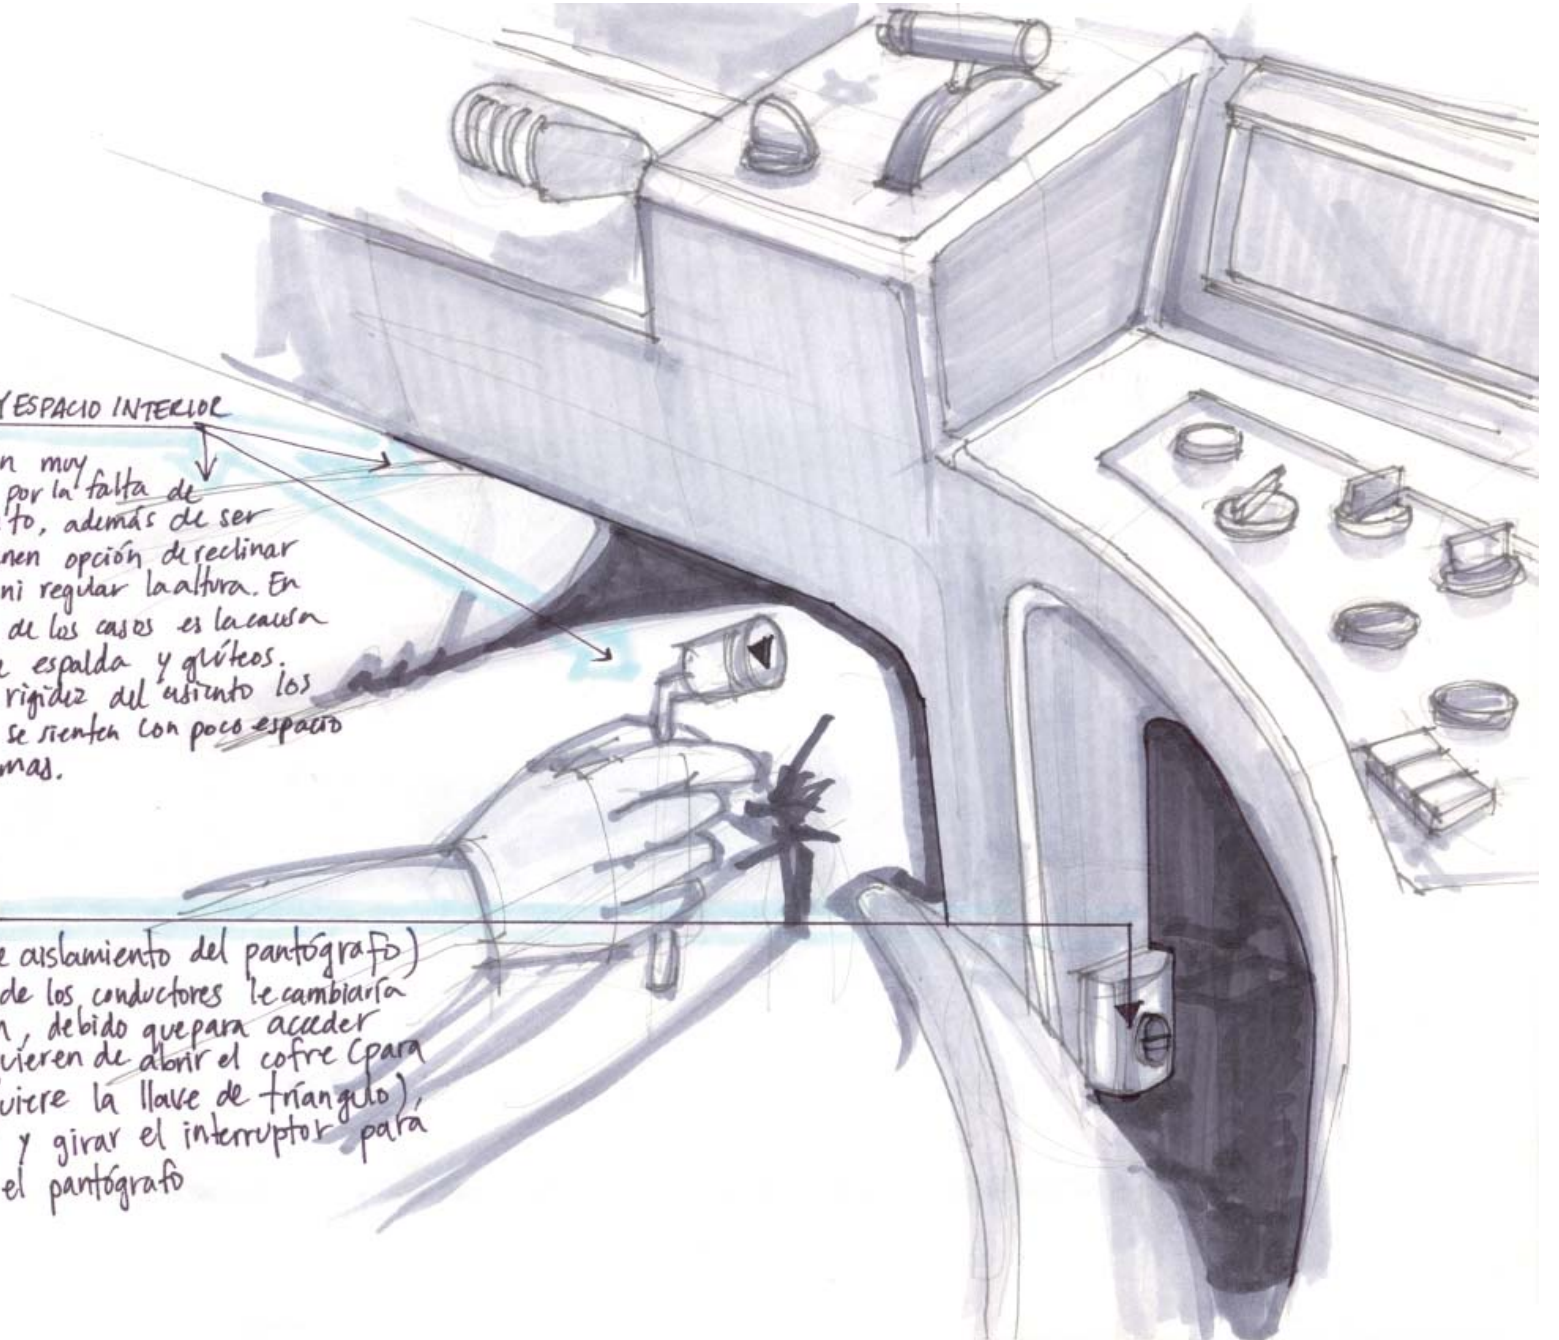 Y ESPACIO INTERIOR
n muy
por la falta de
to, además de ser
nen opción de reclinar
ni regular la altura. En
de los casos es la causa
espalda y glúteos.
rigidez del asiento los
se sienten con poco espacio
mas.
e aislamiento del pantógrafo)
de los conductores le cambiaría
n, debido que para acceder
uieren de abrir el cofre (para
uiere la llave de tríangulo),
y girar el interruptor para
el pantógrafo